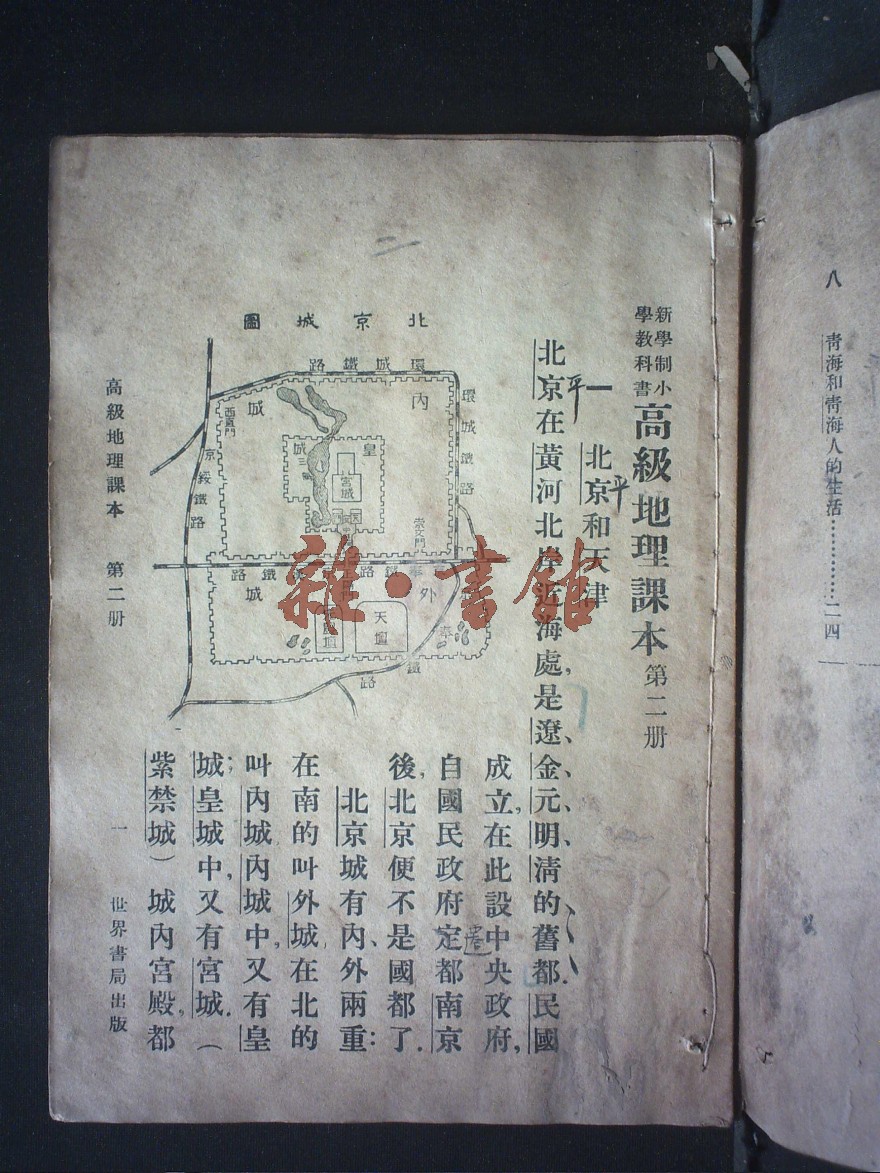 八 青海和青海人的生活…………二四
新學制小
學教科書
高級地理課本 第二册
一 北京和天津
平
北京在黃河北岸近海處，是遼、金、元、明、清的舊都。民國
平
成立，在此設中央政府，
自國民政府定都南京
遷
後，北京便不是國都了。
北京城有內、外兩重：
在南的叫外城，在北的
叫內城。內城中，又有皇
城；皇城中，又有宮城。（
紫禁城）城內宮殿，都
北京城圖
環城鐵路
環城鐵路
內
城
西直門
京綏鐵路
皇
城
三
宮城
崇文門
鐵路
外
城
天壇
奉
鐵
路
高級地理課本 第二册
一
世界書局出版
二
雜·書館